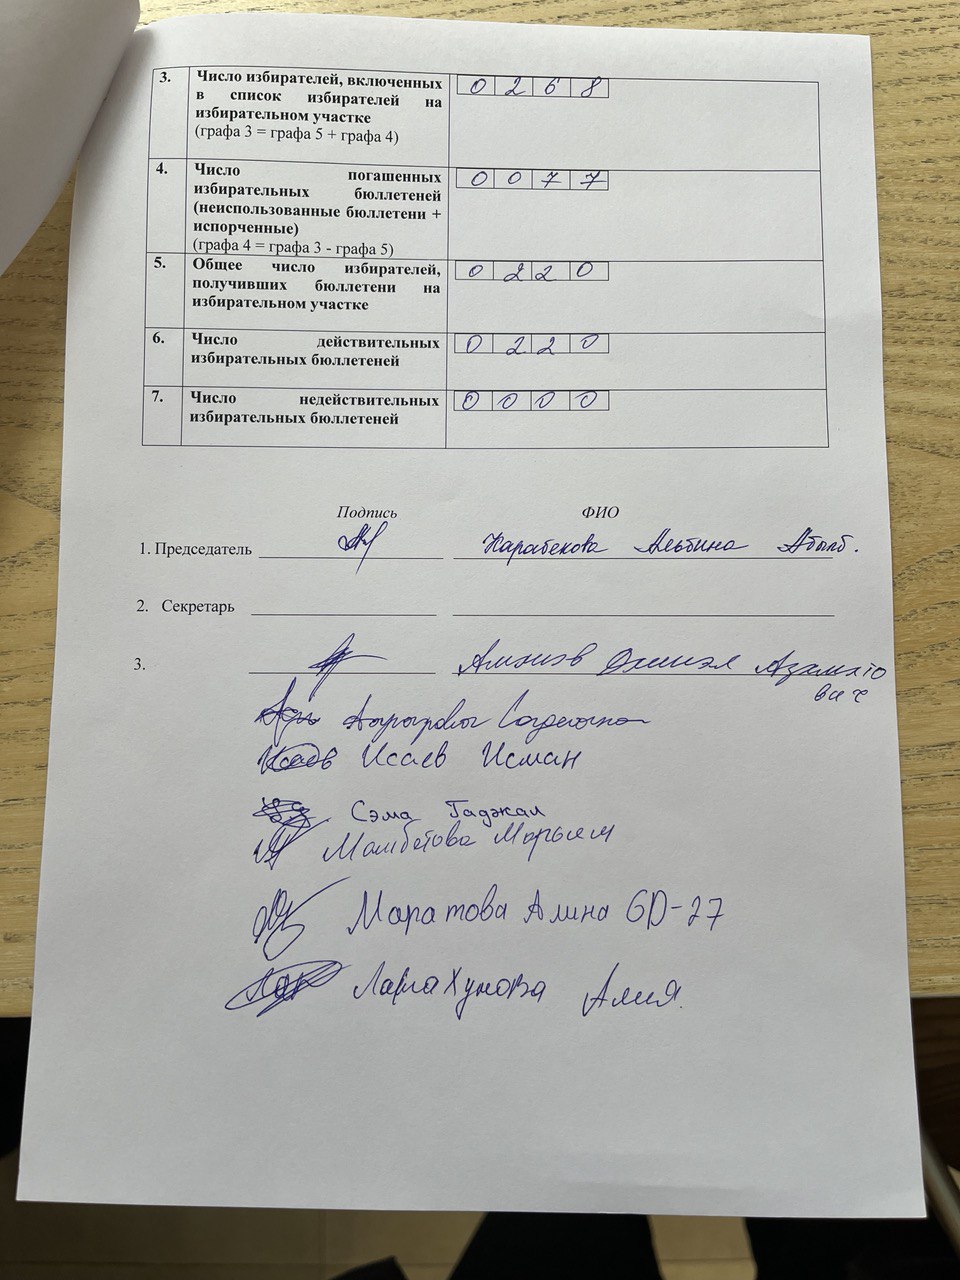 3. Число избирателей, включенных
в список избирателей на
избирательном участке
(графа 3 = графа 5 + графа 4)
0 2 6 8
4. Число погашенных
избирательных бюллетеней
(неиспользованные бюллетени +
испорченные)
(графа 4 = графа 3 - графа 5)
0 0 7 7
5. Общее число избирателей,
получивших бюллетени на
избирательном участке
0 2 2 0
6. Число действительных
избирательных бюллетеней
0 2 2 0
7. Число недействительных
избирательных бюллетеней
0 0 0 0
Подпись ФИО
1. Председатель Карабекова Альбина
2. Секретарь
3. Азамато
вич
Исаев Исман
Сэма Гаджал
Мамбетова Марьям
Маратова Алина GD-27
Алия